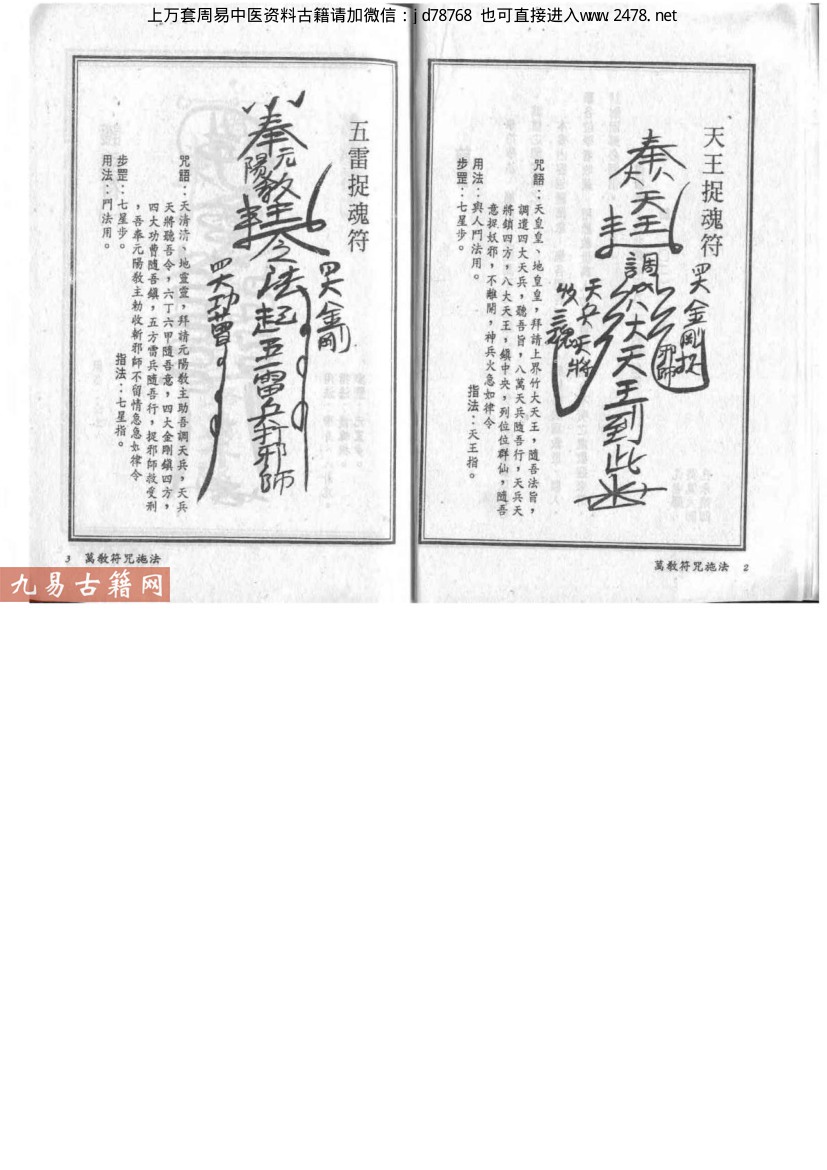 上万套周易中医资料古籍请加微信：jd78768 也可直接进入www.2478.net
天王捉魂符
奉
天王
調
八大天王到此
四大金剛捉
邪師
天兵天將
收三魂
咒語：天皇皇、地皇皇，拜請上界竹大天王，隨吾法旨，
調遣四大天兵，聽吾旨，八萬天兵隨吾行，天兵天
將鎖四方，八大天王，鎮中央，列位位群仙，隨吾
意捉妖邪，不離開，神兵火急如律令
用法：與人鬥法用。
指法：天王指。
步罡：七星步。
萬教符咒施法 2
五雷捉魂符
奉
元陽教主
之法起五雷兵斬邪師
四大金剛
四大功曹
咒語：天清清、地靈靈，拜請元陽教主助吾調天兵，天兵
天將聽吾令，六丁六甲隨吾意，四大金剛鎮四方，
四大功曹隨吾鎮，五方雷兵隨吾行，捉邪師救受刑
，吾奉元陽教主勅收斬邪師不留情急急如律令
步罡：七星步。
指法：七星指。
用法：鬥法用。
3 萬教符咒施法
九易古籍网